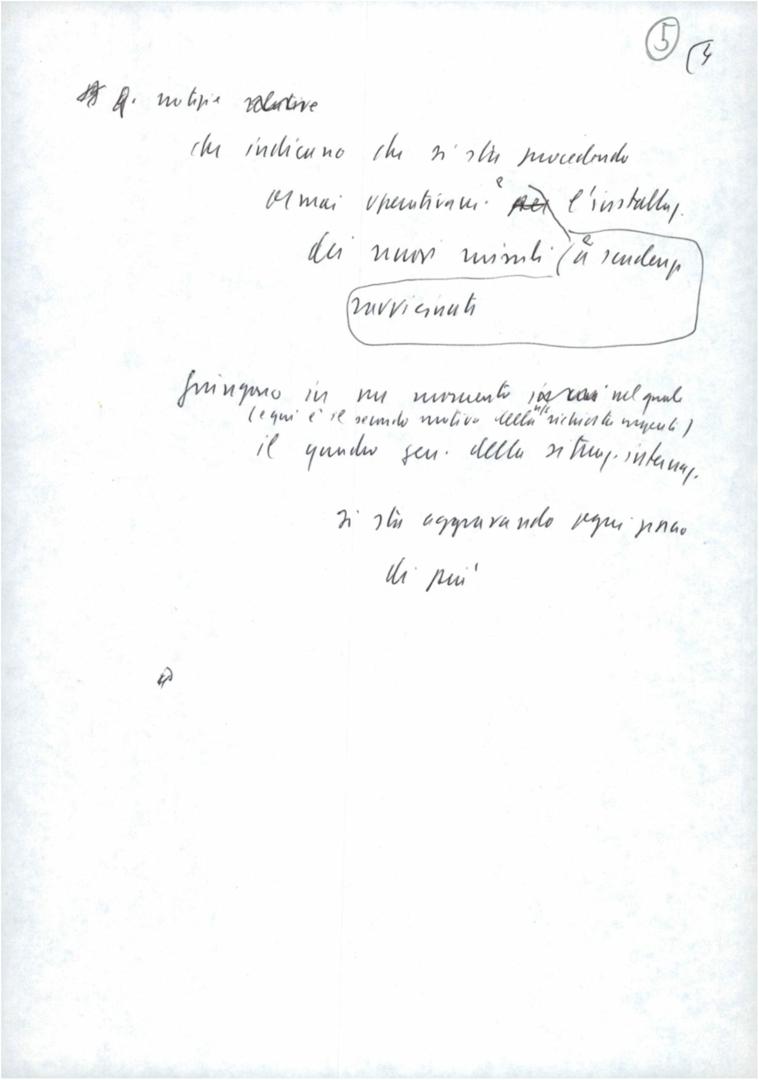 5 (4
Q. notizie relative
che indicano che si sta procedendo
ormai operativam. per l'installaz.
dei nuovi missili (a scadenz
ravvicinate
giungono in un momento nel quale
(e qui è il secondo motivo della ns/ richiesta urgente)
il quadro gen. della situaz. internaz.
si sta aggravando ogni giorno
di più